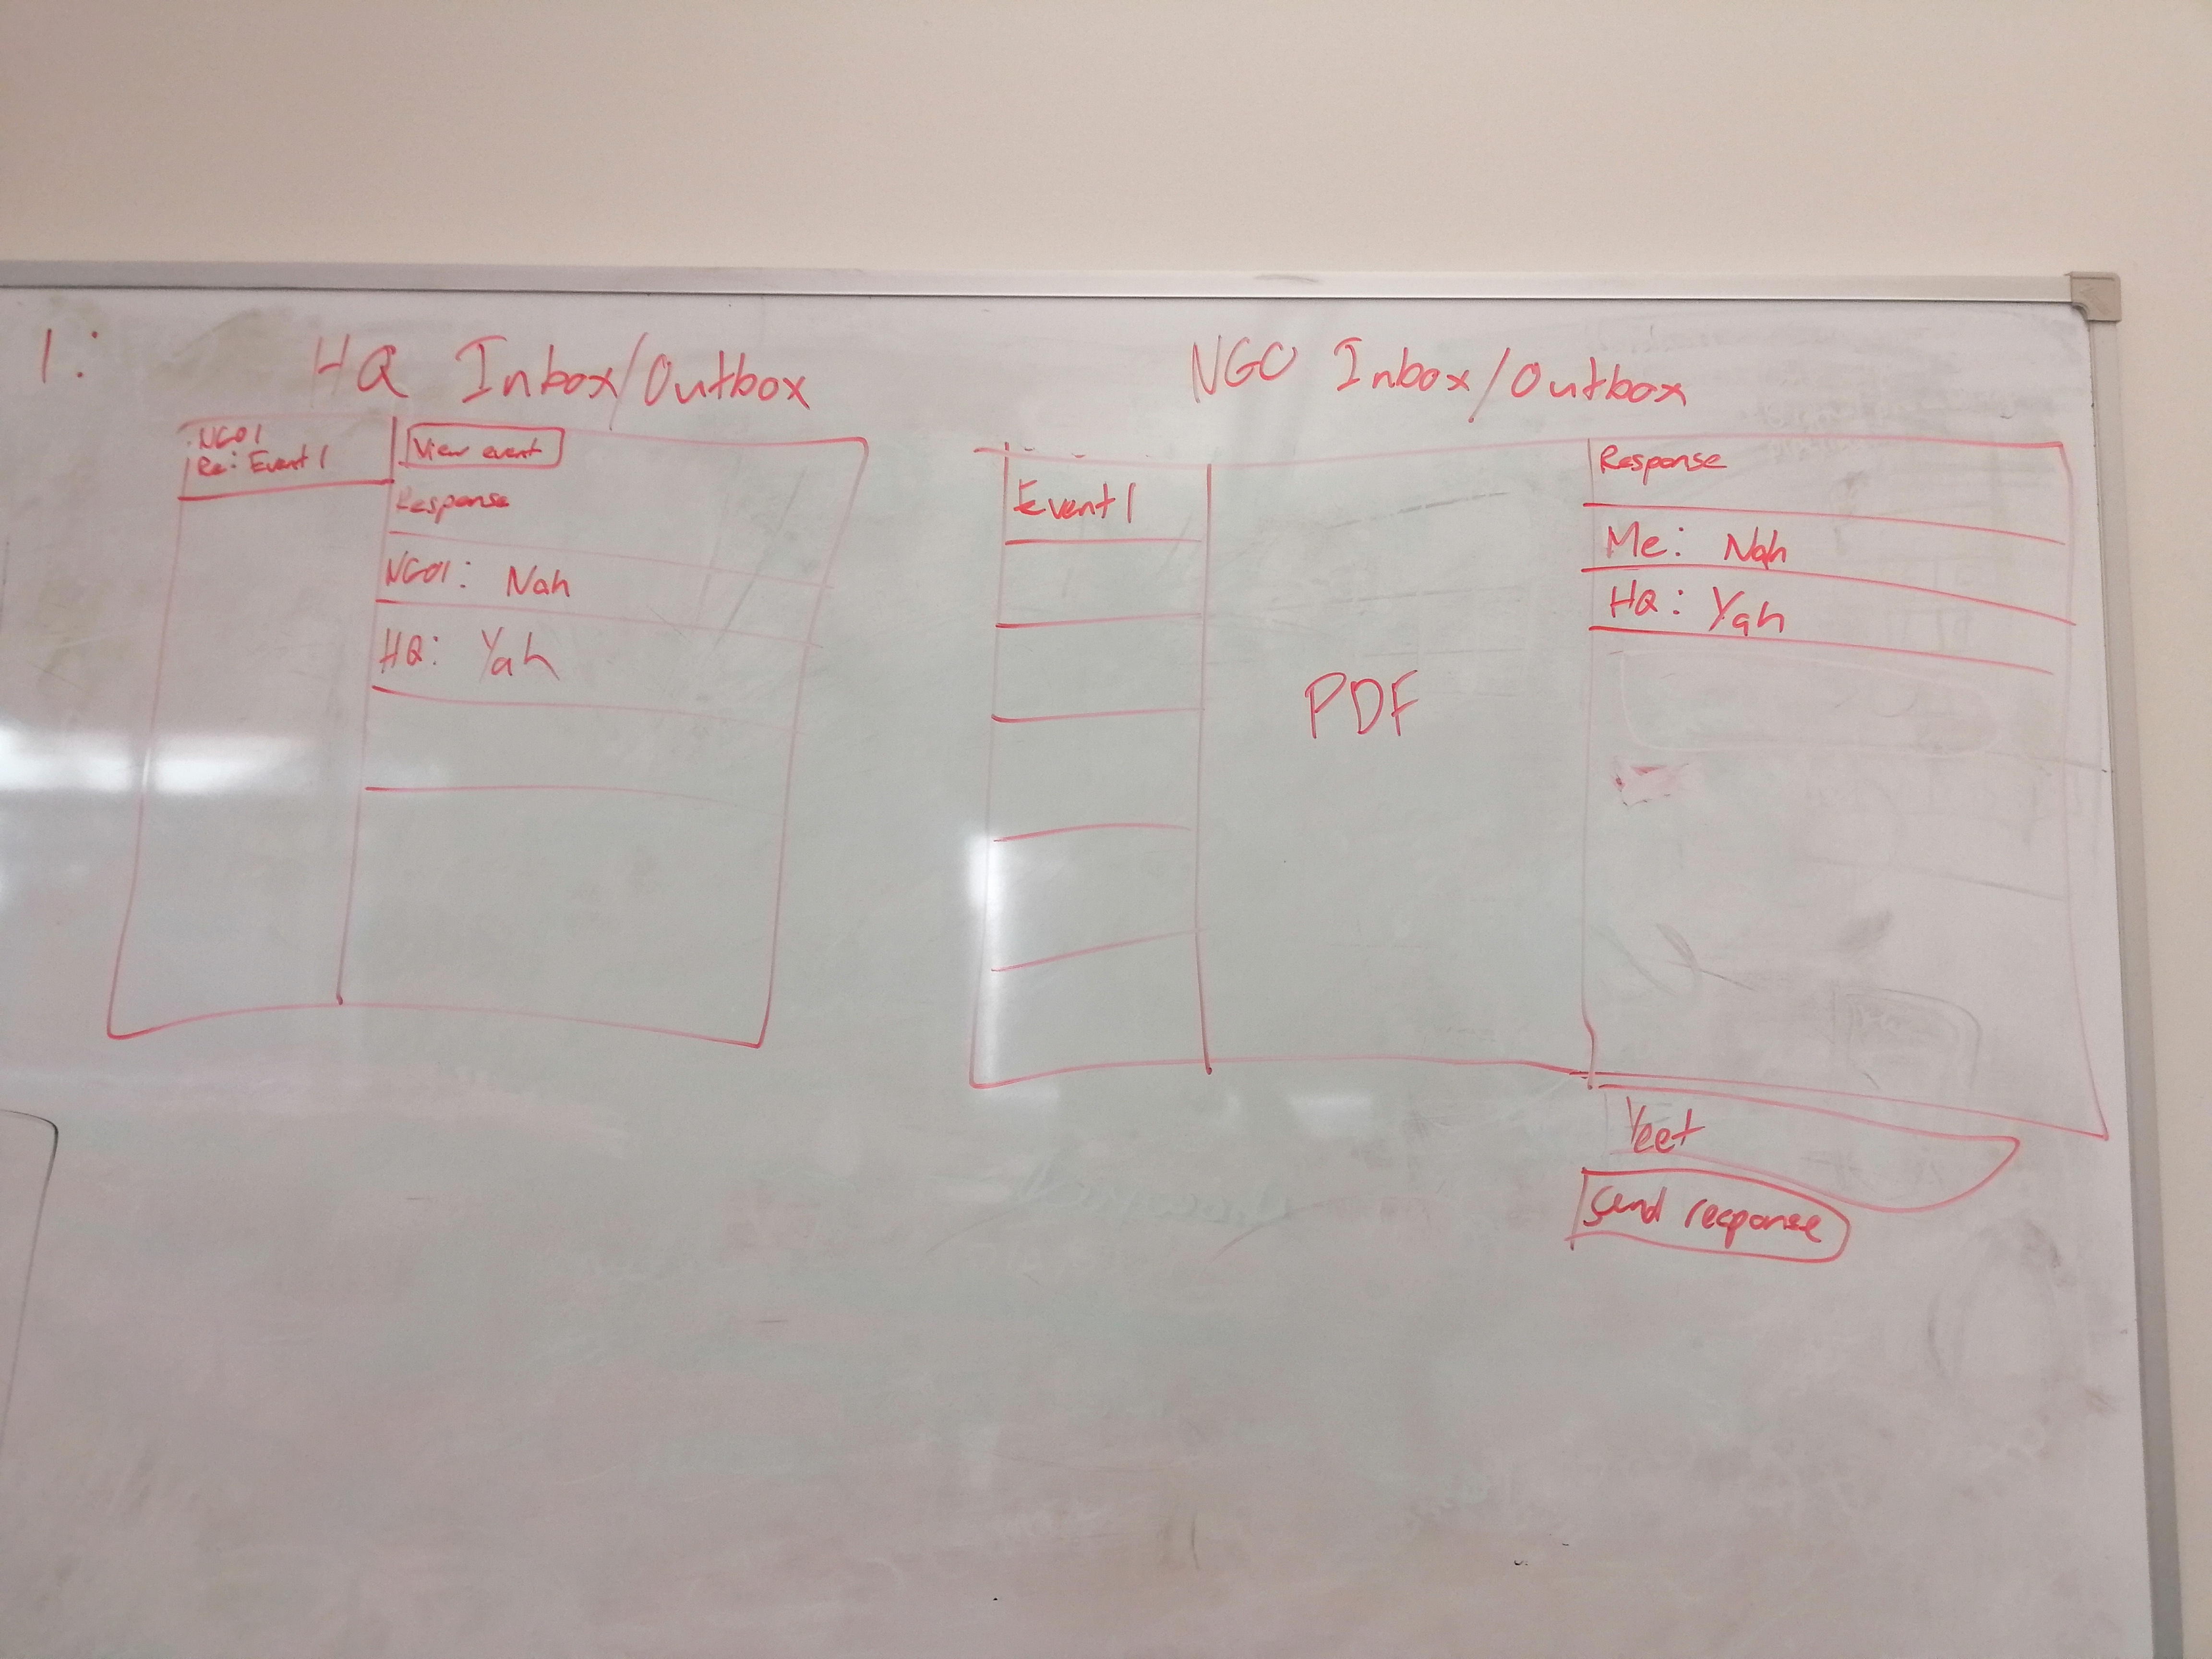 1:
HQ Inbox/Outbox
NGO1
Re: Event 1
View event
Response
NGO1: Nah
HQ: Yah
NGO Inbox/Outbox
Event 1
PDF
Response
Me: Nah
HQ: Yah
Yeet
Send response